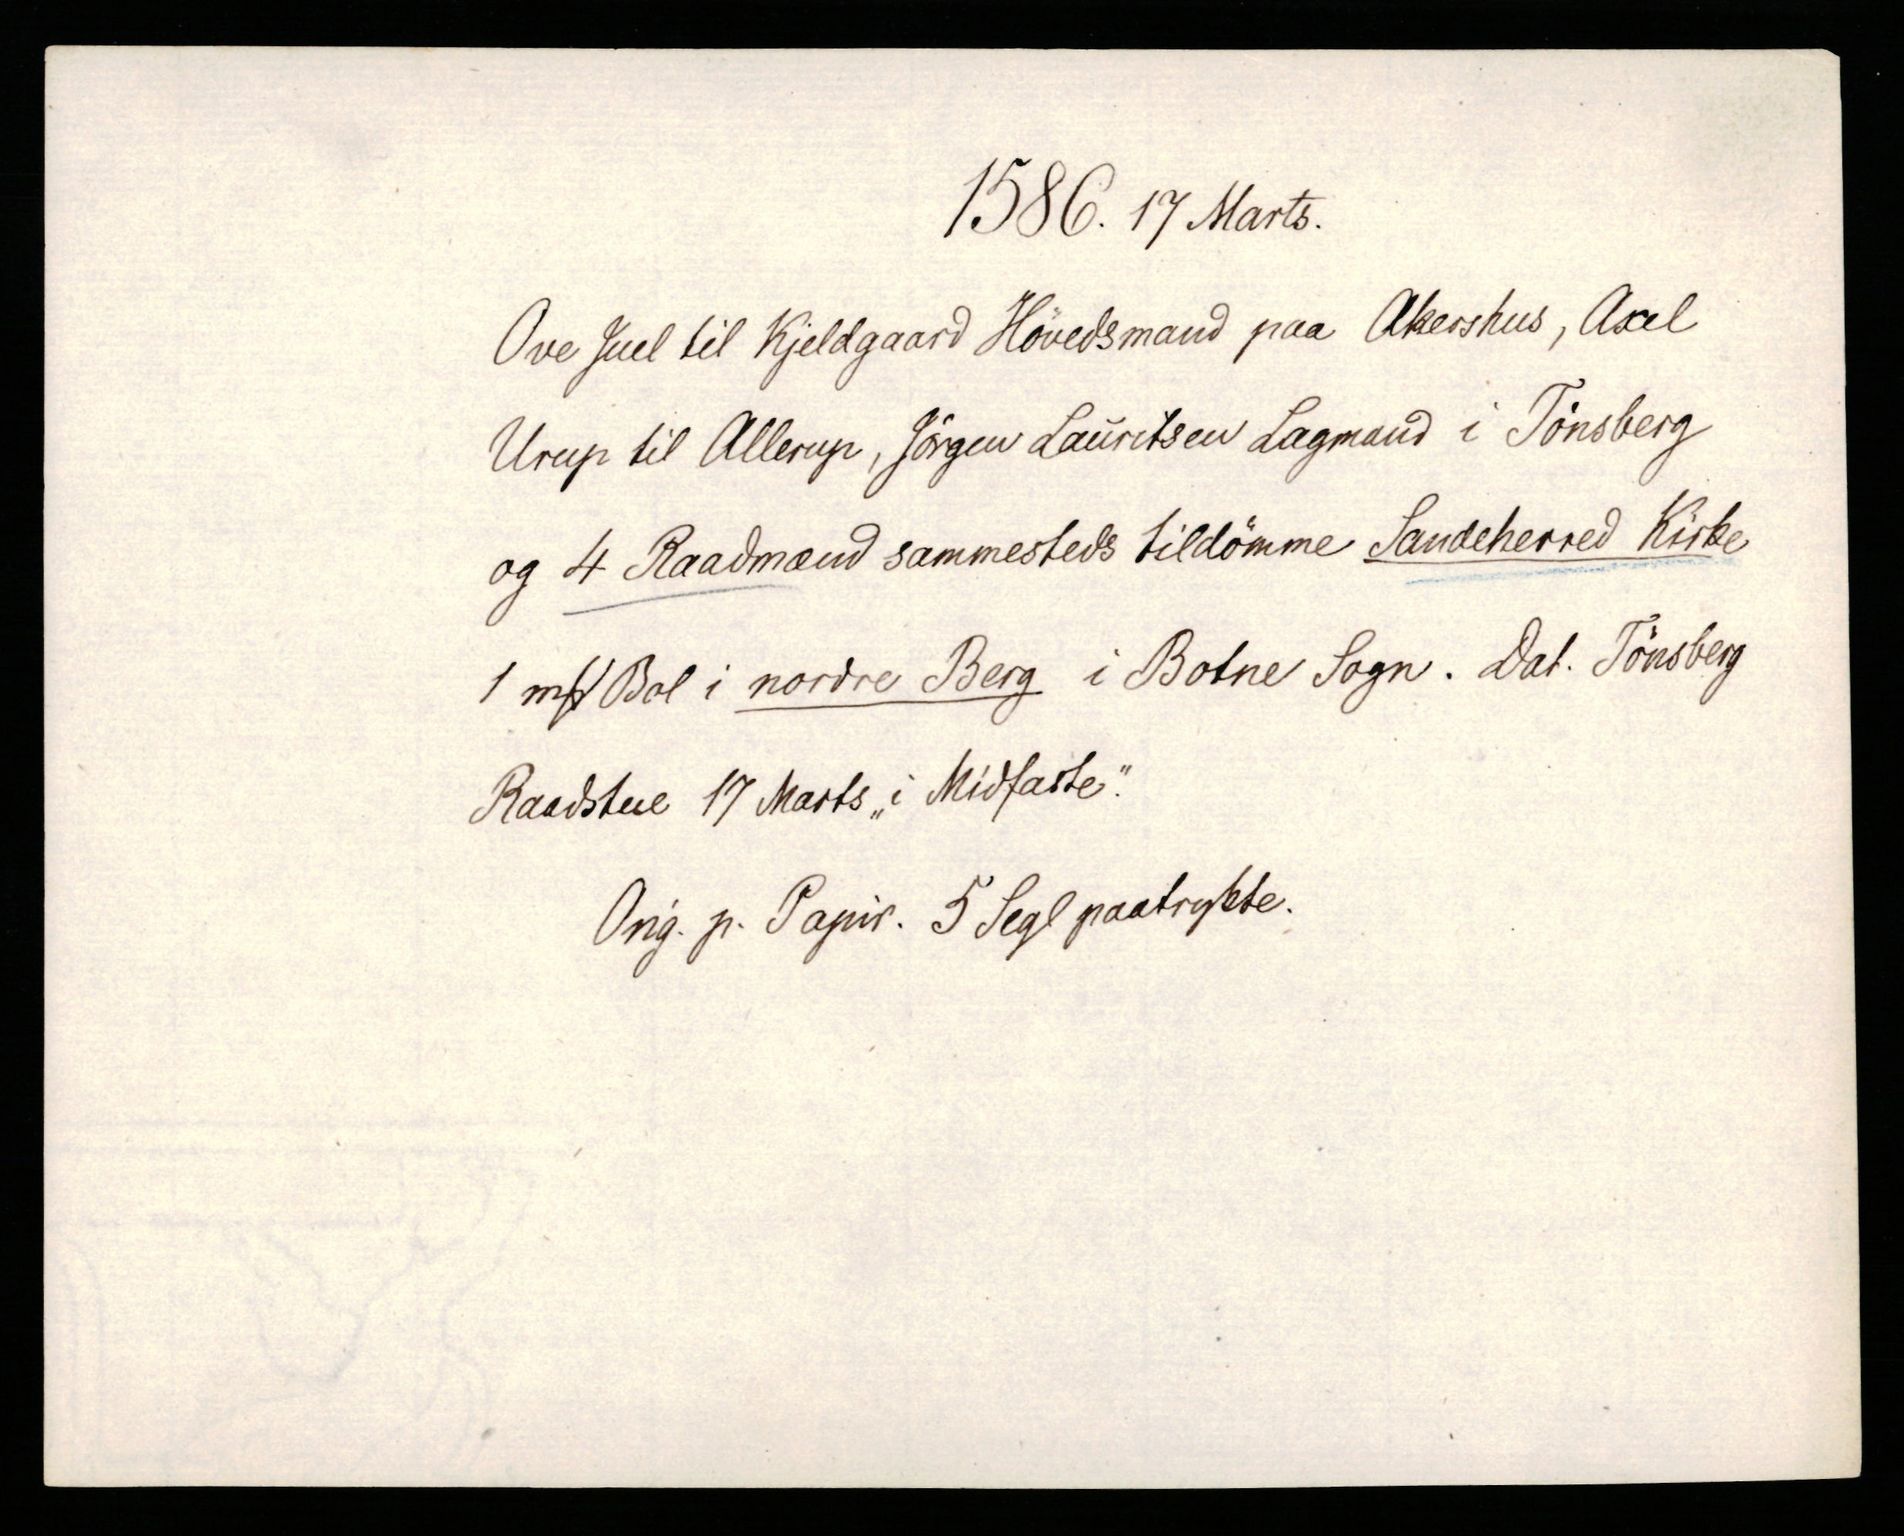 1586. 17 Marts.
Ove Juel til Kjeldgaard Hövedsmand paa Akershus, Axel
Urup til Allerup, Jörgen Lauritsen Lagmand i Tönsberg
og 4 Raadmænd sammesteds tildömme Sandeherred Kirke
1 Bol i nordre Berg i Botne Sogn. Dat. Tönsberg
Raadstue 17 Marts „i Midfaste".
Orig. p. Papir. 5 Segl paatrykte.